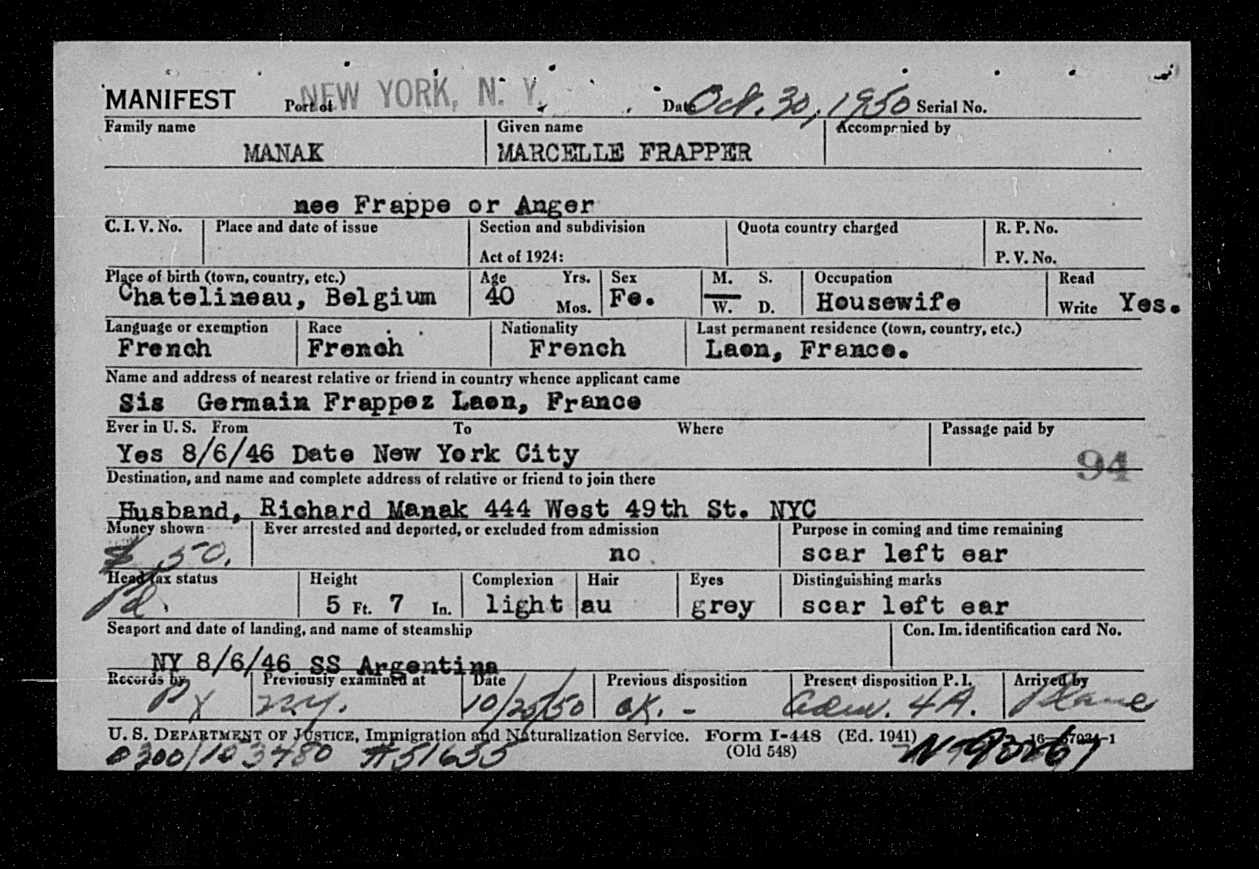 MANIFEST Port of NEW YORK, N. Y. Date Oct. 30, 1950 Serial No.
Family name Given name Accompanied by
MANAK MARCELLE FRAPPER
nee Frappe or Anger
C. I. V. No. Place and date of issue Section and subdivision Quota country charged R. P. No.
Act of 1924: P. V. No.
Place of birth (town, country, etc.) Age Yrs. Sex M. S. Occupation Read
Chatelineau, Belgium 40 Mos. Fe. W. D. Housewife Write Yes.
Language or exemption Race Nationality Last permanent residence (town, country, etc.)
French French French Laon, France.
Name and address of nearest relative or friend in country whence applicant came
Sis Germain Frappez Laon, France
Ever in U. S. From To Where Passage paid by
Yes 8/6/46 Date New York City 94
Destination, and name and complete address of relative or friend to join there
Husband, Richard Manak 444 West 49th St. NYC
Money shown Ever arrested and deported, or excluded from admission Purpose in coming and time remaining
$ 50. no scar left ear
Head tax status Height Complexion Hair Eyes Distinguishing marks
Pd. 5 Ft. 7 In. light au grey scar left ear
Seaport and date of landing, and name of steamship Con. Im. identification card No.
NY 8/6/46 SS Argentina
Records by Previously examined at Date Previous disposition Present disposition P. I. Arrived by
NY. 10/25/50 OK. - Adm. 4A. Plane
U. S. DEPARTMENT OF JUSTICE, Immigration and Naturalization Service. Form I-448 (Ed. 1941)
(Old 548)
0300/103480 #51655